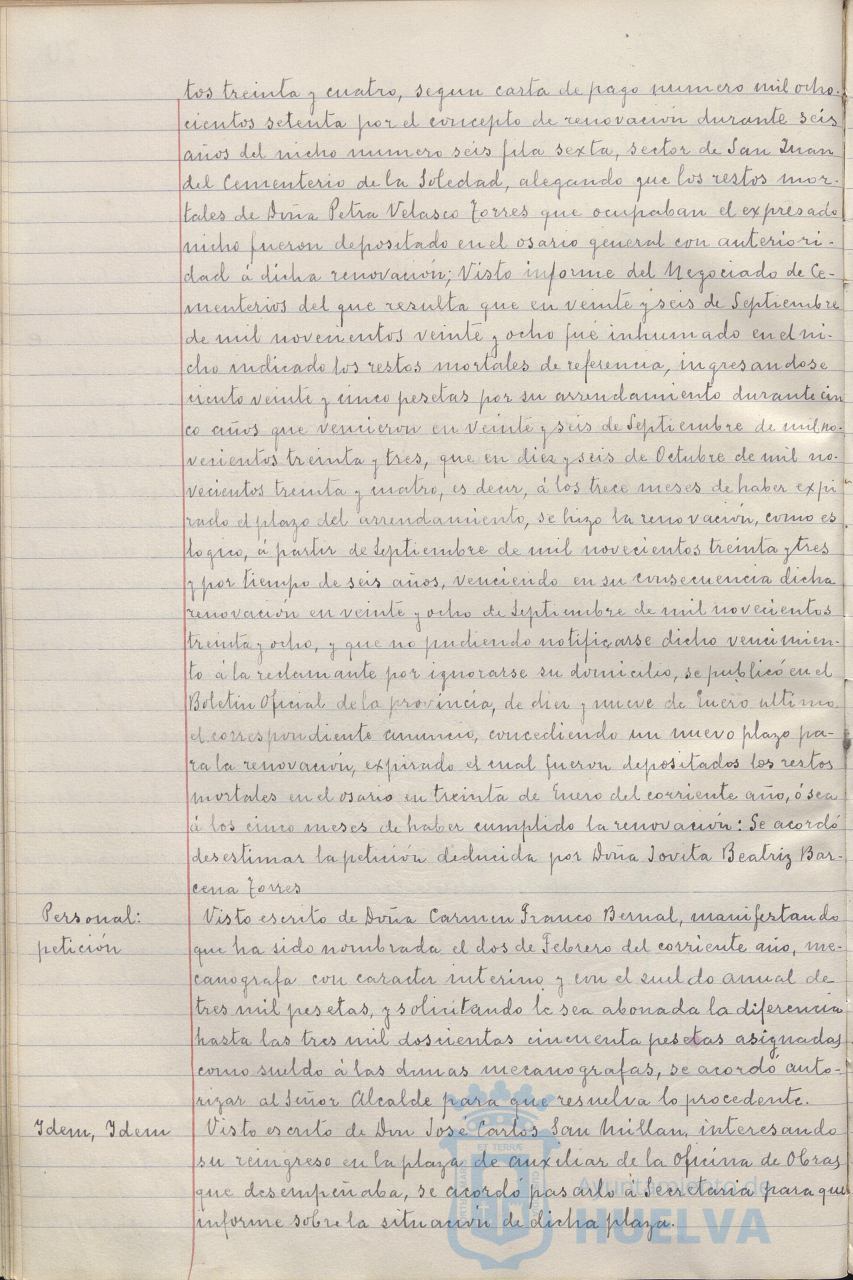 tos treinta y cuatro, segun carta de pago numero mil ocho-
cientos setenta por el concepto de renovación durante seis
años del nicho numero seis fila sexta, sector de San Juan
del Cementerio de la Soledad, alegando que los restos mor-
tales de Doña Petra Velasco Torres que ocupaban el expresado
nicho fueron depositado en el osario general con anteriori-
dad á dicha renovación; Visto informe del Negociado de Ce-
menterios del que resulta que en veinte y seis de Septiembre
de mil novecientos veinte y ocho fué inhumado en el ni-
cho indicado los restos mortales de referencia, ingresandose
ciento veinte y cinco pesetas por su arrendamiento durante cin
co años que vencieron en veinte y seis de Septiembre de mil no-
vecientos treinta y tres, que en diez y seis de Octubre de mil no-
vecientos treinta y cuatro, es decir, á los trece meses de haber expi
rado el plazo del arrendamiento, se hizo la renovación, como es
logico, á partir de Septiembre de mil novecientos treinta y tres
y por tiempo de seis años, venciendo en su consecuencia dicha
renovación en veinte y ocho de Septiembre de mil novecientos
treinta y ocho, y que no pudiendo notificarse dicho vencimien-
to á la reclamante por ignorarse su domicilio, se publicó en el
Boletin Oficial de la provincia, de diez y nueve de Enero ultimo
el correspondiente anuncio, concediendo un nuevo plazo pa-
ra la renovación, expirado el cual fueron depositados los restos
mortales en el osario en treinta de Enero del corriente año, ó sea
á los cinco meses de haber cumplido la renovación: Se acordó
desestimar la petición deducida por Doña Jovita Beatriz Bar-
cena Torres
Personal:
petición
Visto escrito de Doña Carmen Franco Bernal, manifestando
que ha sido nombrada el dos de Febrero del corriente año, me-
canografa con caracter interino y con el sueldo anual de
tres mil pesetas, y solicitando le sea abonada la diferencia
hasta las tres mil doscientas cincuenta pesetas asignadas
como sueldo á las demas mecanografas, se acordó auto-
rizar al Señor Alcalde para que resuelva lo procedente.
Idem, Idem
Visto escrito de Don José Carlos San Millan, interesando
su reingreso en la plaza de auxiliar de la Oficina de Obras
que desempeñaba, se acordó pasarlo á Secretaria para que
informe sobre la situación de dicha plaza.
Ayuntamiento de
HUELVA